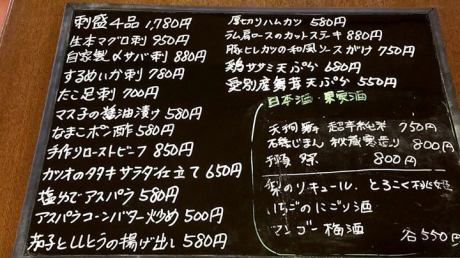 刺盛4品 1,780円
生本マグロ刺 950円
自家製〆サバ刺 880円
するめいか刺 780円
たこ足刺 700円
マス子の醤油漬け 580円
なまこポン酢 580円
手作りローストビーフ 850円
カツオのタタキサラダ仕立て 650円
塩ゆでアスパラ 580円
アスパラコーンバター炒め 500円
茄子とししとうの揚げ出し 580円
厚切りハムカツ 580円
ラム肩ロースのカットステーキ 880円
豚ヒレカツの和風ソースがけ 750円
鶏ササミ天ぷら 680円
愛別産舞茸天ぷら 550円
日本酒・果実酒
天狗舞 超辛純米 750円
磯じまん 800円
獺祭 800円
梨のリキュール. とろこく
いちごのにごり酒
マンゴー梅酒 各550円